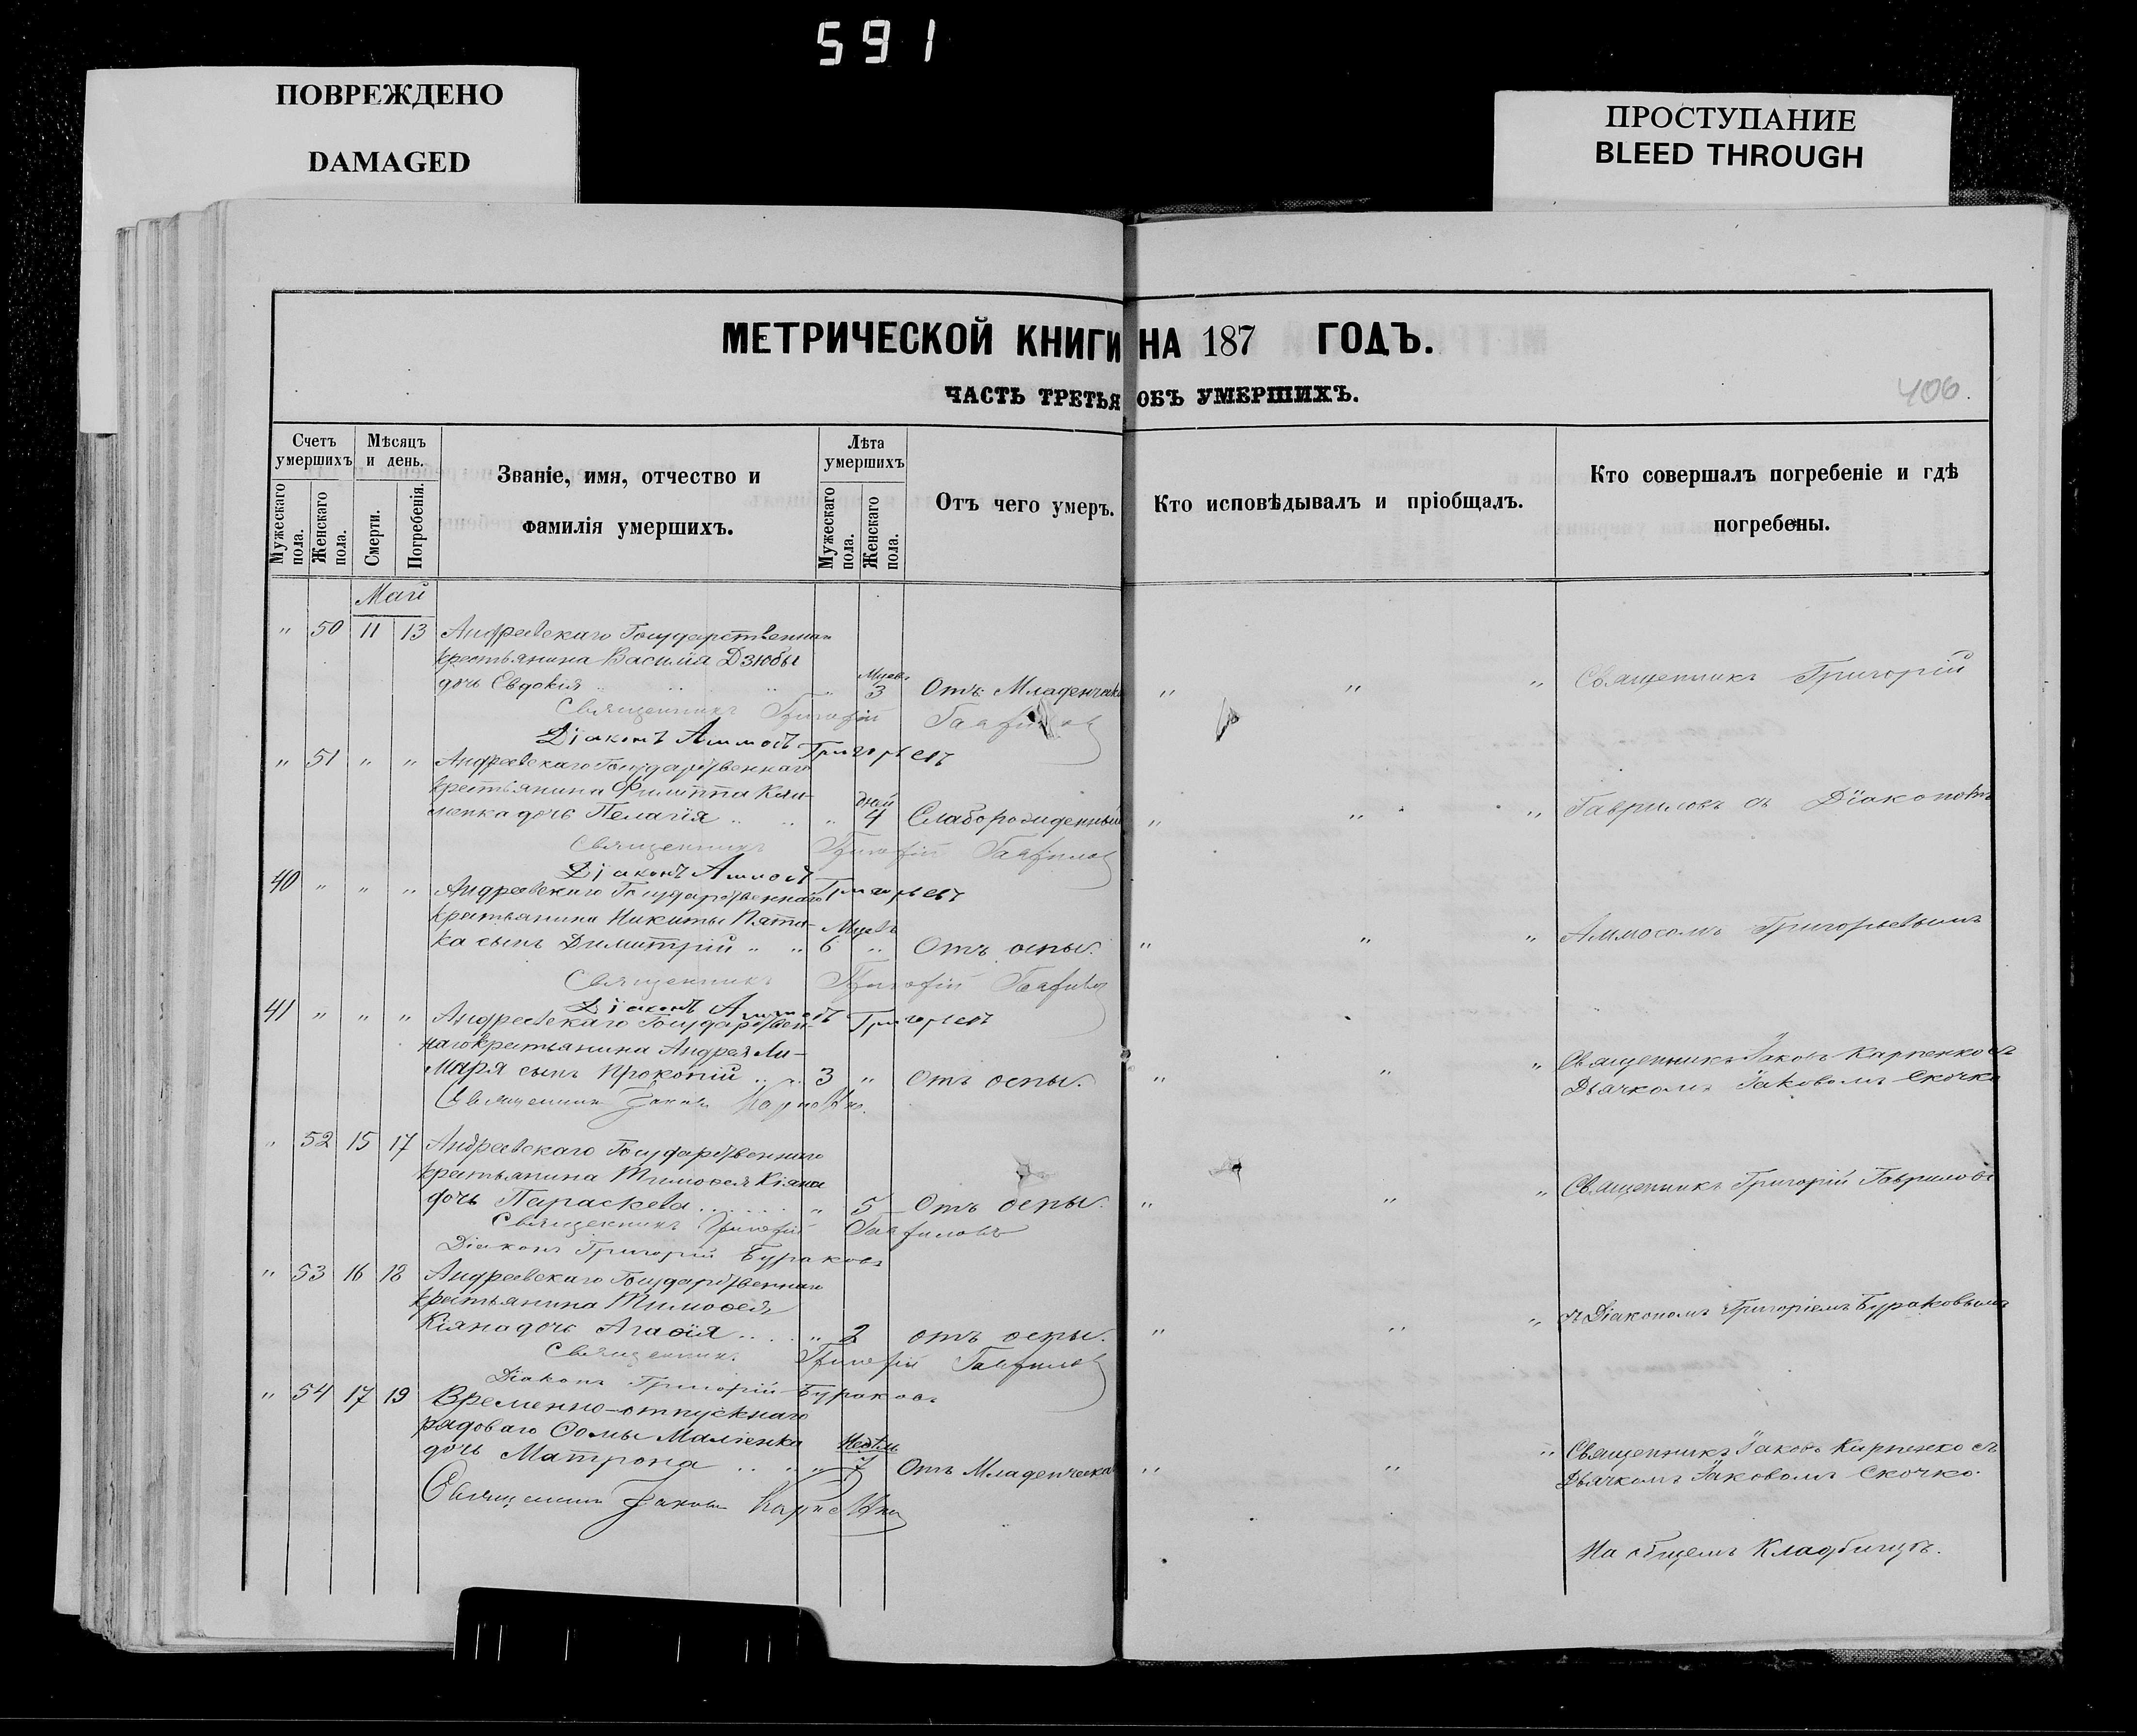 591
ПОВРЕЖДЕНО
DAMAGED
ПРОСТУПАНИЕ
BLEED THROUGH
МЕТРИЧЕСКОЙ КНИГИ НА 187 ГОДЪ.
ЧАСТЬ ТРЕТЬЯ ОБЪ УМЕРШИХЪ.
406
Счетъ умершихъ
Мѣсяцъ и день.
Званіе, имя, отчество и фамилія умершихъ.
Лѣта умершихъ
Отъ чего умеръ.
Кто исповѣдывалъ и пріобщалъ.
Кто совершалъ погребеніе и гдѣ погребены.
Мужескаго пола.
Женскаго пола.
Смерти.
Погребенія.
Мужескаго пола.
Женскаго пола.
Май
" 50 11 13 Андреевскаго Государственнаго
крестьянина Василія Дзюбы
дочь Евдокія " 3 Отъ Младенческ " " " Священникъ Григорій
Священникъ Григорій Гаврилов
Діаконъ Аммосъ Григорьевъ
" 51 " " Андреевскаго Государственнаго
крестьянина Филиппа Кли-
менка дочь Пелагія " дней 4 Слаборожденный " " " Гавриловъ съ Діакономъ
Священникъ Григорій Гаврилов
Діаконъ Аммосъ Григорьевъ
40 " " " Андреевскаго Государственнаго
крестьянина Никиты Пята-
ка сынъ Димитрій 6 " Отъ оспы. " " " Аммосомъ Григорьевымъ
Священникъ Григорій Гаврилов
Діаконъ Аммосъ Григорьевъ
41 " " " Андреевскаго Государствен-
наго крестьянина Андрея Ли-
маря сынъ Прокопій 3 " Отъ оспы. " " " Священникъ Іаковъ Карпенко съ
Дьячкомъ Іаковомъ Скочко
Священникъ Іаковъ Карпенко.
" 52 15 17 Андреевскаго Государственнаго
крестьянина Тимоѳея Кіяна
дочь Параскева " 5 Отъ оспы. " " " Священникъ Григорій Гавриловъ
Священникъ Григорій Гавриловъ
Діаконъ Григорій Бураковъ
" 53 16 18 Андреевскаго Государственнаго
крестьянина Тимоѳея
Кіяна дочь Агаѳія " 2 отъ оспы. " " " съ Діакономъ Григоріемъ Бураковымъ
Священникъ Григорій Гаврилов
Діаконъ Григорій Бураковъ
" 54 17 19 Временно-отпускнаго
рядоваго Ѳомы
дочь Матрона " Недѣль 7 Отъ Младенческа " " " Священникъ Іаковъ Карпенко съ
Дьячкомъ Іаковомъ Скочко.
Священникъ Іаковъ Карпенко
На общемъ Кладбищѣ.